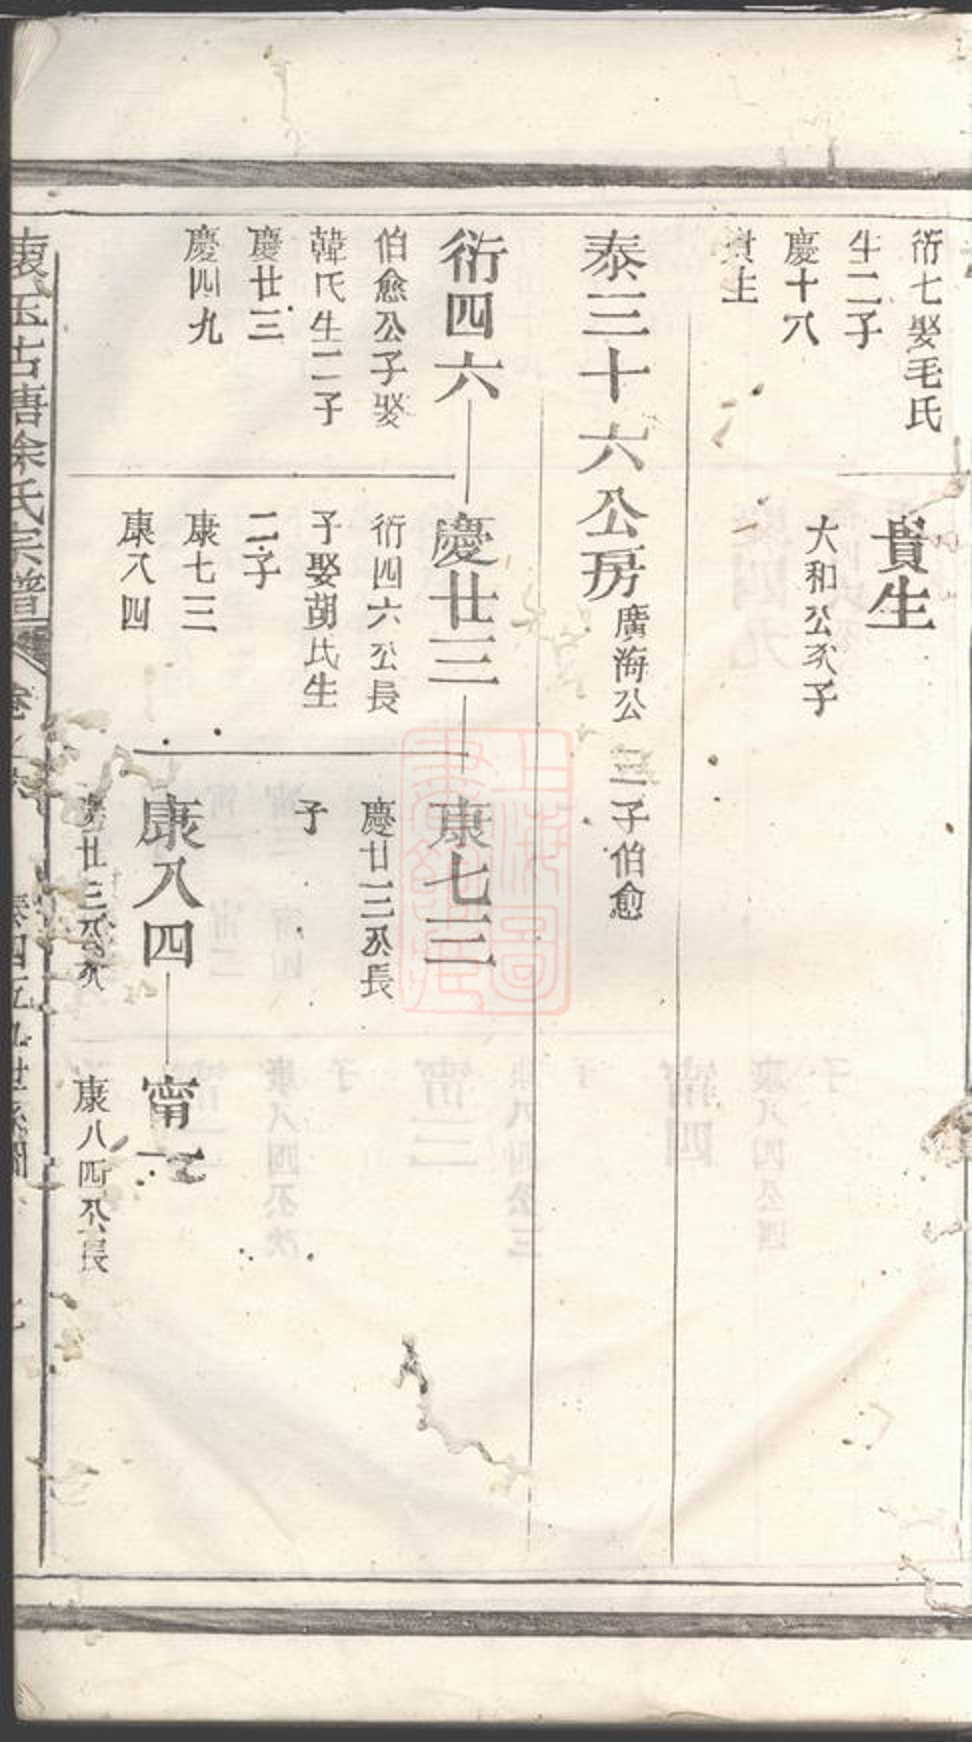 衍七娶毛氏
生二子
慶十八
貴生
貴生
大和公次子
泰三十六公房
廣海公三子伯愈
衍四六
伯愈公子娶
韓氏生二子
慶廿三
慶四九
慶廿三
衍四六公長
子娶胡氏生
二子
康七三
康八四
康七三
慶廿三公長
子
康八四
慶廿三公次
甯一
康八四公長
玉古塘徐氏宗譜